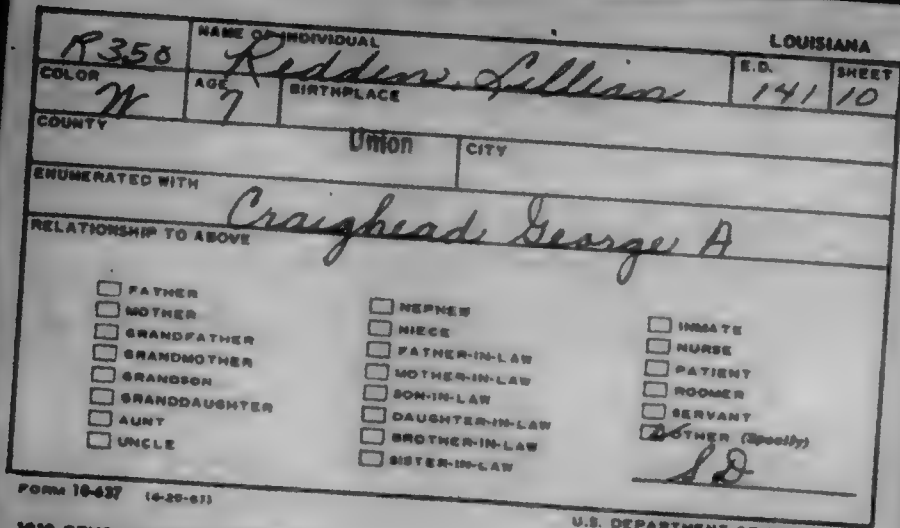 LOUISIANA
R350 NAME OF INDIVIDUAL Redden, Lillian E.D. 141 SHEET 10
COLOR W AGE 7 BIRTHPLACE
COUNTY Union CITY
ENUMERATED WITH Craighead George A
RELATIONSHIP TO ABOVE
FATHER
MOTHER
GRANDFATHER
GRANDMOTHER
GRANDSON
GRANDDAUGHTER
AUNT
UNCLE
NEPHEW
NIECE
FATHER-IN-LAW
MOTHER-IN-LAW
SON-IN-LAW
DAUGHTER-IN-LAW
BROTHER-IN-LAW
SISTER-IN-LAW
INMATE
NURSE
PATIENT
ROOMER
SERVANT
OTHER (Specify)
S D
FORM 10-637 (4-20-61)
U.S. DEPARTMENT